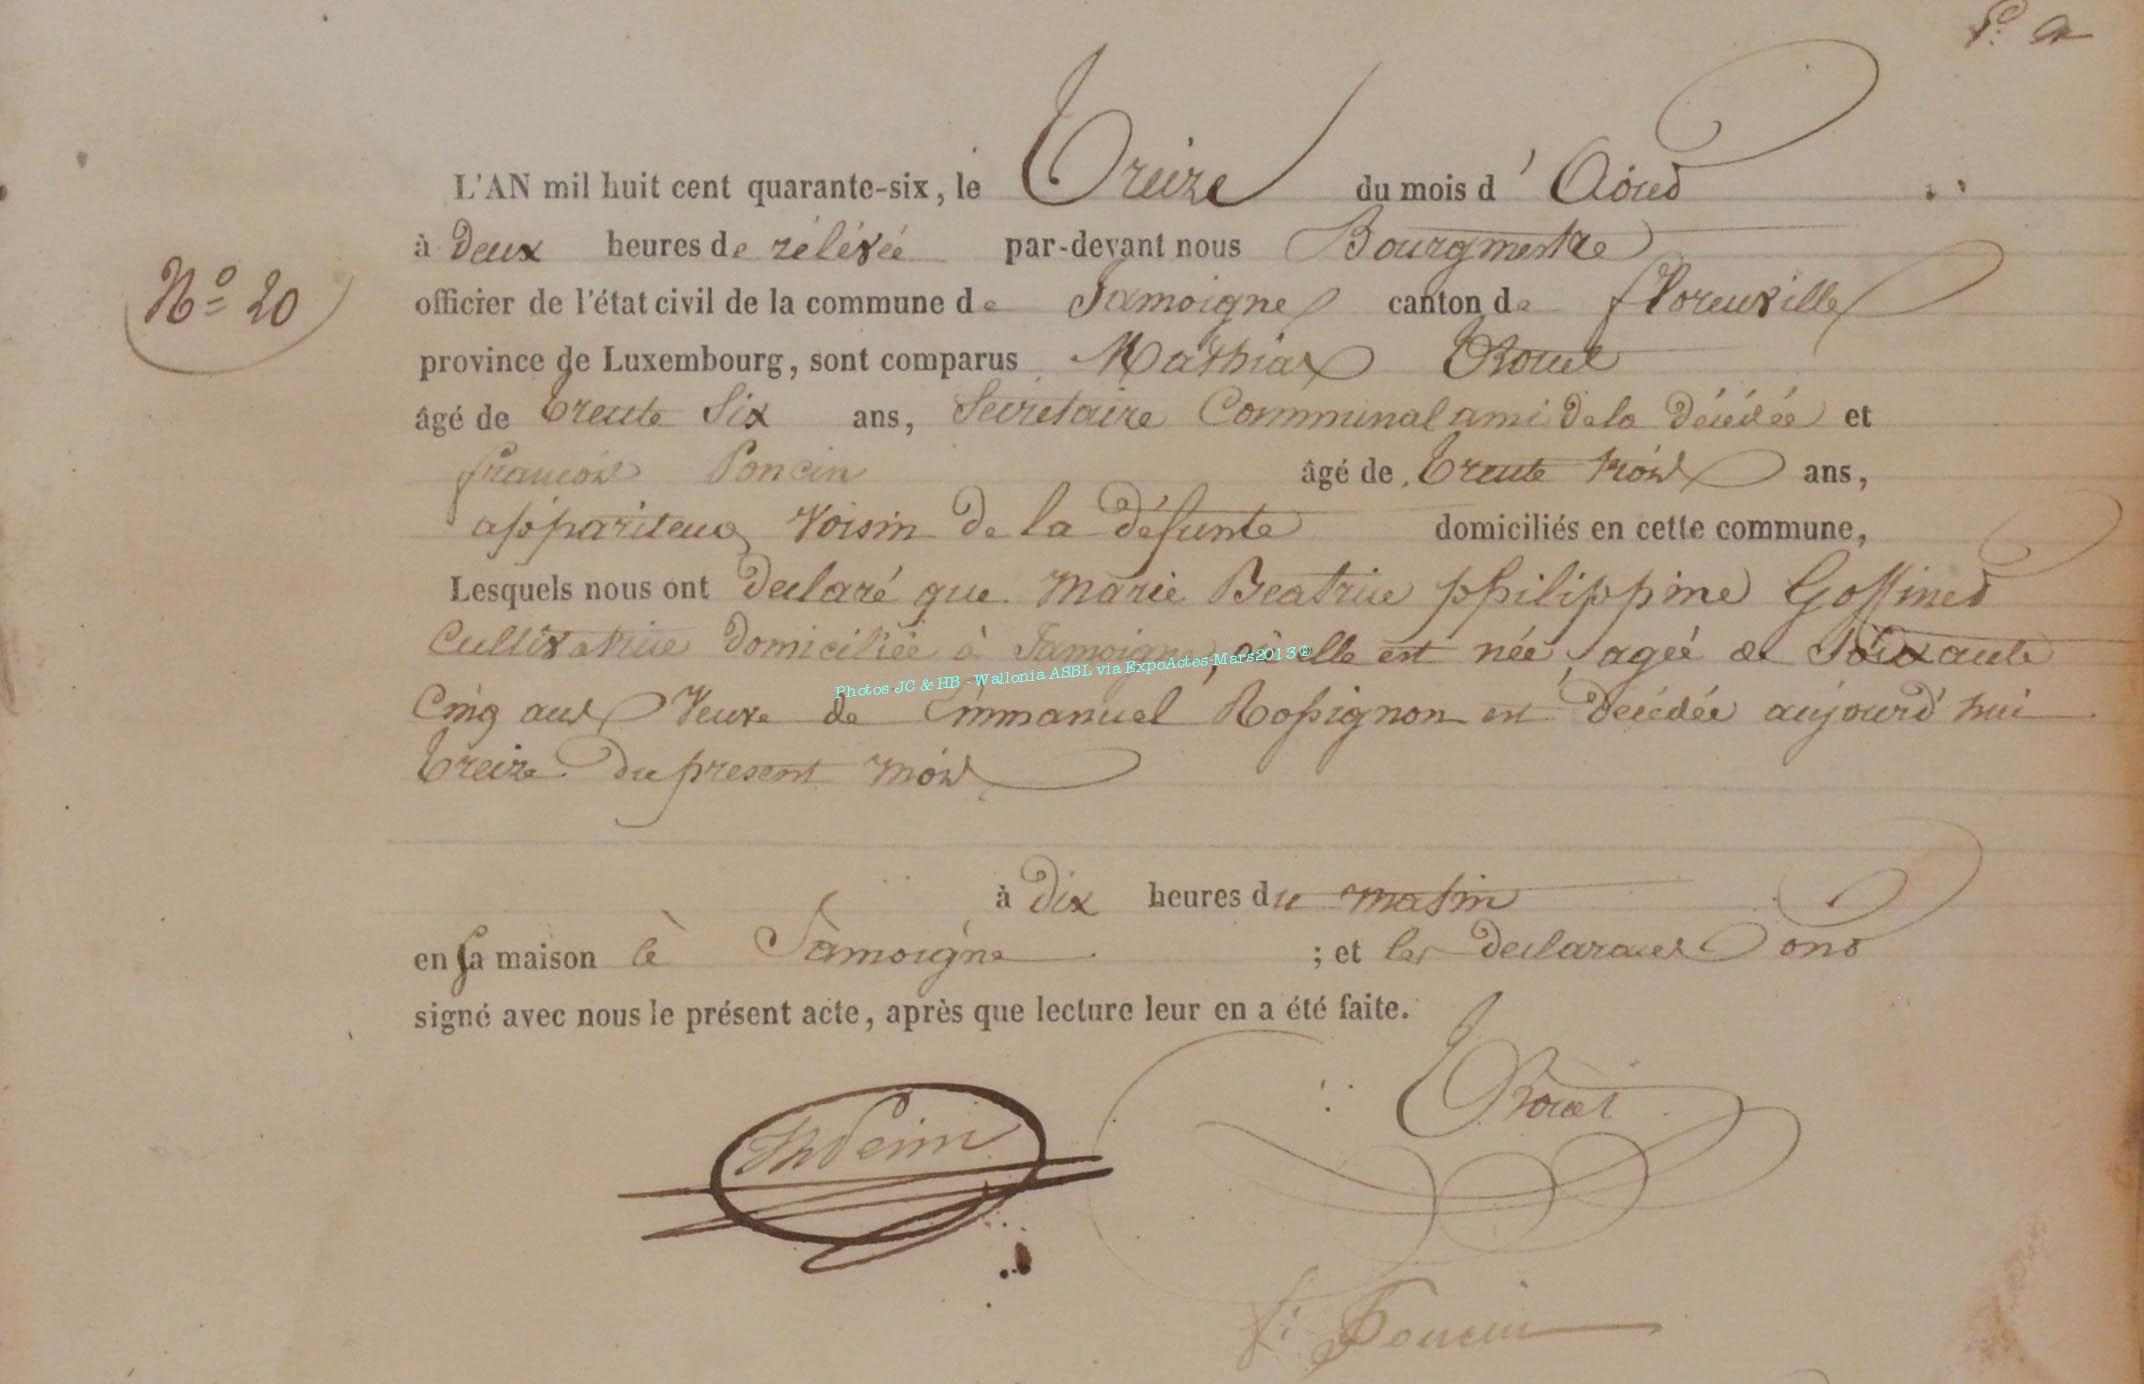 L'AN mil huit cent quarante-six, le Treize du mois d' Aoud
à deux heures de rélévéé par-devant nous Bourgmestre
N° 20
officier de l'état civil de la commune de Jamoigne canton de florenville
province de Luxembourg, sont comparus Mathias
âgé de trente Six ans, Secretaire Communal ami de la décédée et
françois Poncin âgé de trente trois ans,
appariteur Voisin de la défunte domiciliés en cette commune,
Lesquels nous ont declaré que Marie Beatrice philippine Goffined
Cultivatrice domiciliée à Jamoigne, où elle est née, ageé de Soixante
Cinq ans Veuve de Emmanuel Rossignon est décédée aujourd'hui
treize du present mois
à dix heures du matin
en sa maison à Jamoigne ; et les declarans ond
signé avec nous le présent acte, après que lecture leur en a été faite.
f: Poncin
Photos JC & HB - Wallonia ASBL via ExpoActes Mars2013®